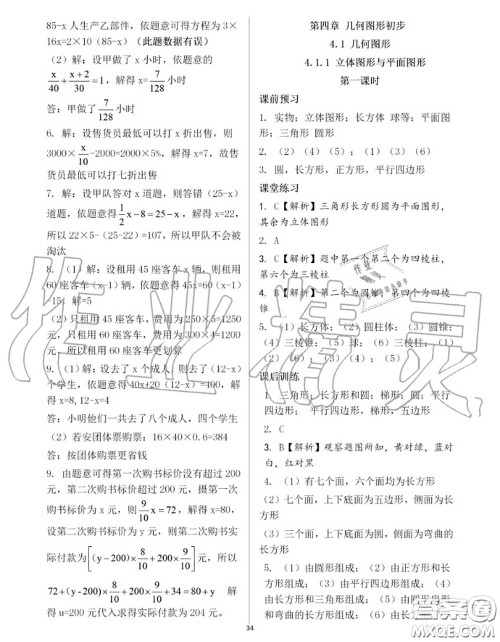 85-x 人生产乙部件，依题意可得方程为 3×
16x=2×10（85-x）（此题数据有误）
（2）解：设甲做了 x 小时，依题意的
x/40 + (x+2)/30 =1，解得 x= 7/128 小时
答：甲做了 7/128 小时
6. 解：设售货员最低可以打 x 折出售，则
3000× x/10 -2000=2000×5%，解得 x=7，故售
货员最低可以打七折出售
7. 解：设甲队答对 x 道题，则答错（25-x）
道题，依题意得 1/2 x-8=25-x，解得 x=22，
所以 22×5-（25-22）=107，所以甲队不会被
淘汰
8.（1）解：设租用 45 座客车 x 辆，则租用
60 座客车（x-1）辆，依题意得 45x=60（x-1）
-15，解=5
（2）只租用 45 座客车，费用为 250×5=1250
元，只租用 60 座客车，费用为 300×4=1200
元，所以租用 60 座客车更划算
9.（1）解：设去了 x 个成人，则去了（12-x）
个学生，依题意得 40x+20（12-x）=400，解得
x=8,12-x=4
答：小明他们一共去了八个成人，四个学生
（2）若安团体票购票：16×40×0.6=384
答：按团体购票更省钱
9. 由题意可得第一次购书标价没有超过 200
元，第二次购书标价超过 200 元，摄第一次
购书标价为 x 元，则 9/10 x=72，解得 x=80，
设第二次购书标价为 y 元，则第二次购书实
际付款为[(y-200)× 8/10 +200× 9/10]元，所以
72+(y-200)× 8/10 +200× 9/10 +34=80+y 解
得 u=200 元代入求得实际付款为 204 元。
第四章 几何图形初步
4.1 几何图形
4.1.1 立体图形与平面图形
第一课时
课前预习
1. 实物；立体图形；长方体 球等；平面图
形；三角形 圆形
2. （2）（4）（5）；（1）（3）（6）
3. 圆，长方形，正方形，平行四边形
课堂练习
1. C【解析】三角形长方形圆为平面图形，
其余为立体图形
2. A
3. C【解析】题中第一个第二个为四棱柱，
第六个为三棱柱
4. B【解析】第二个为圆锥，第四个为四棱
锥
5.（1）长方体；（2）圆柱体；（3）圆锥；
（4）三棱锥；（5）球；（6）三棱柱；（1）
（2）（6）；（3）（4）；（5）
课后训练
1. 三角形；长方形和圆；梯形；圆；平行
四边形； 三角形，平行四边形，梯形，五边形
2. C
3. B【解析】观察题图所知，黄对绿，蓝对
白，红对黑
4. （1）有七个面，六个面均为长方形
（2）七个面，上下底面为五边形，侧面为长
方形
（3）三个面，上下底面为圆形，侧面为弯曲
的长方形
5. （1）由圆与长方形组成；（2）由圆和长
方形组成；（3）由平行四边形和长方形组成；
（4）由长方形组成；（5）由平面圆形
和弯曲的长方形组成；（6）由长方形组成
34
作业精灵
答案圈
MXQE.COM